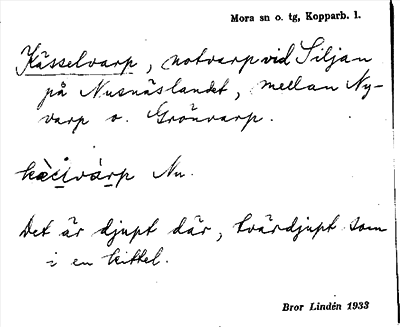 Mora sn o. tg, Kopparb. l.
Kässelvarp, notvarp vid Siljan
på Nusnäslandet, mellan Ny-
varp o. Grönvarp.
Nu.
Det är djupt där, tvärdjupt som
i en kittel.
Bror Lindén 1933